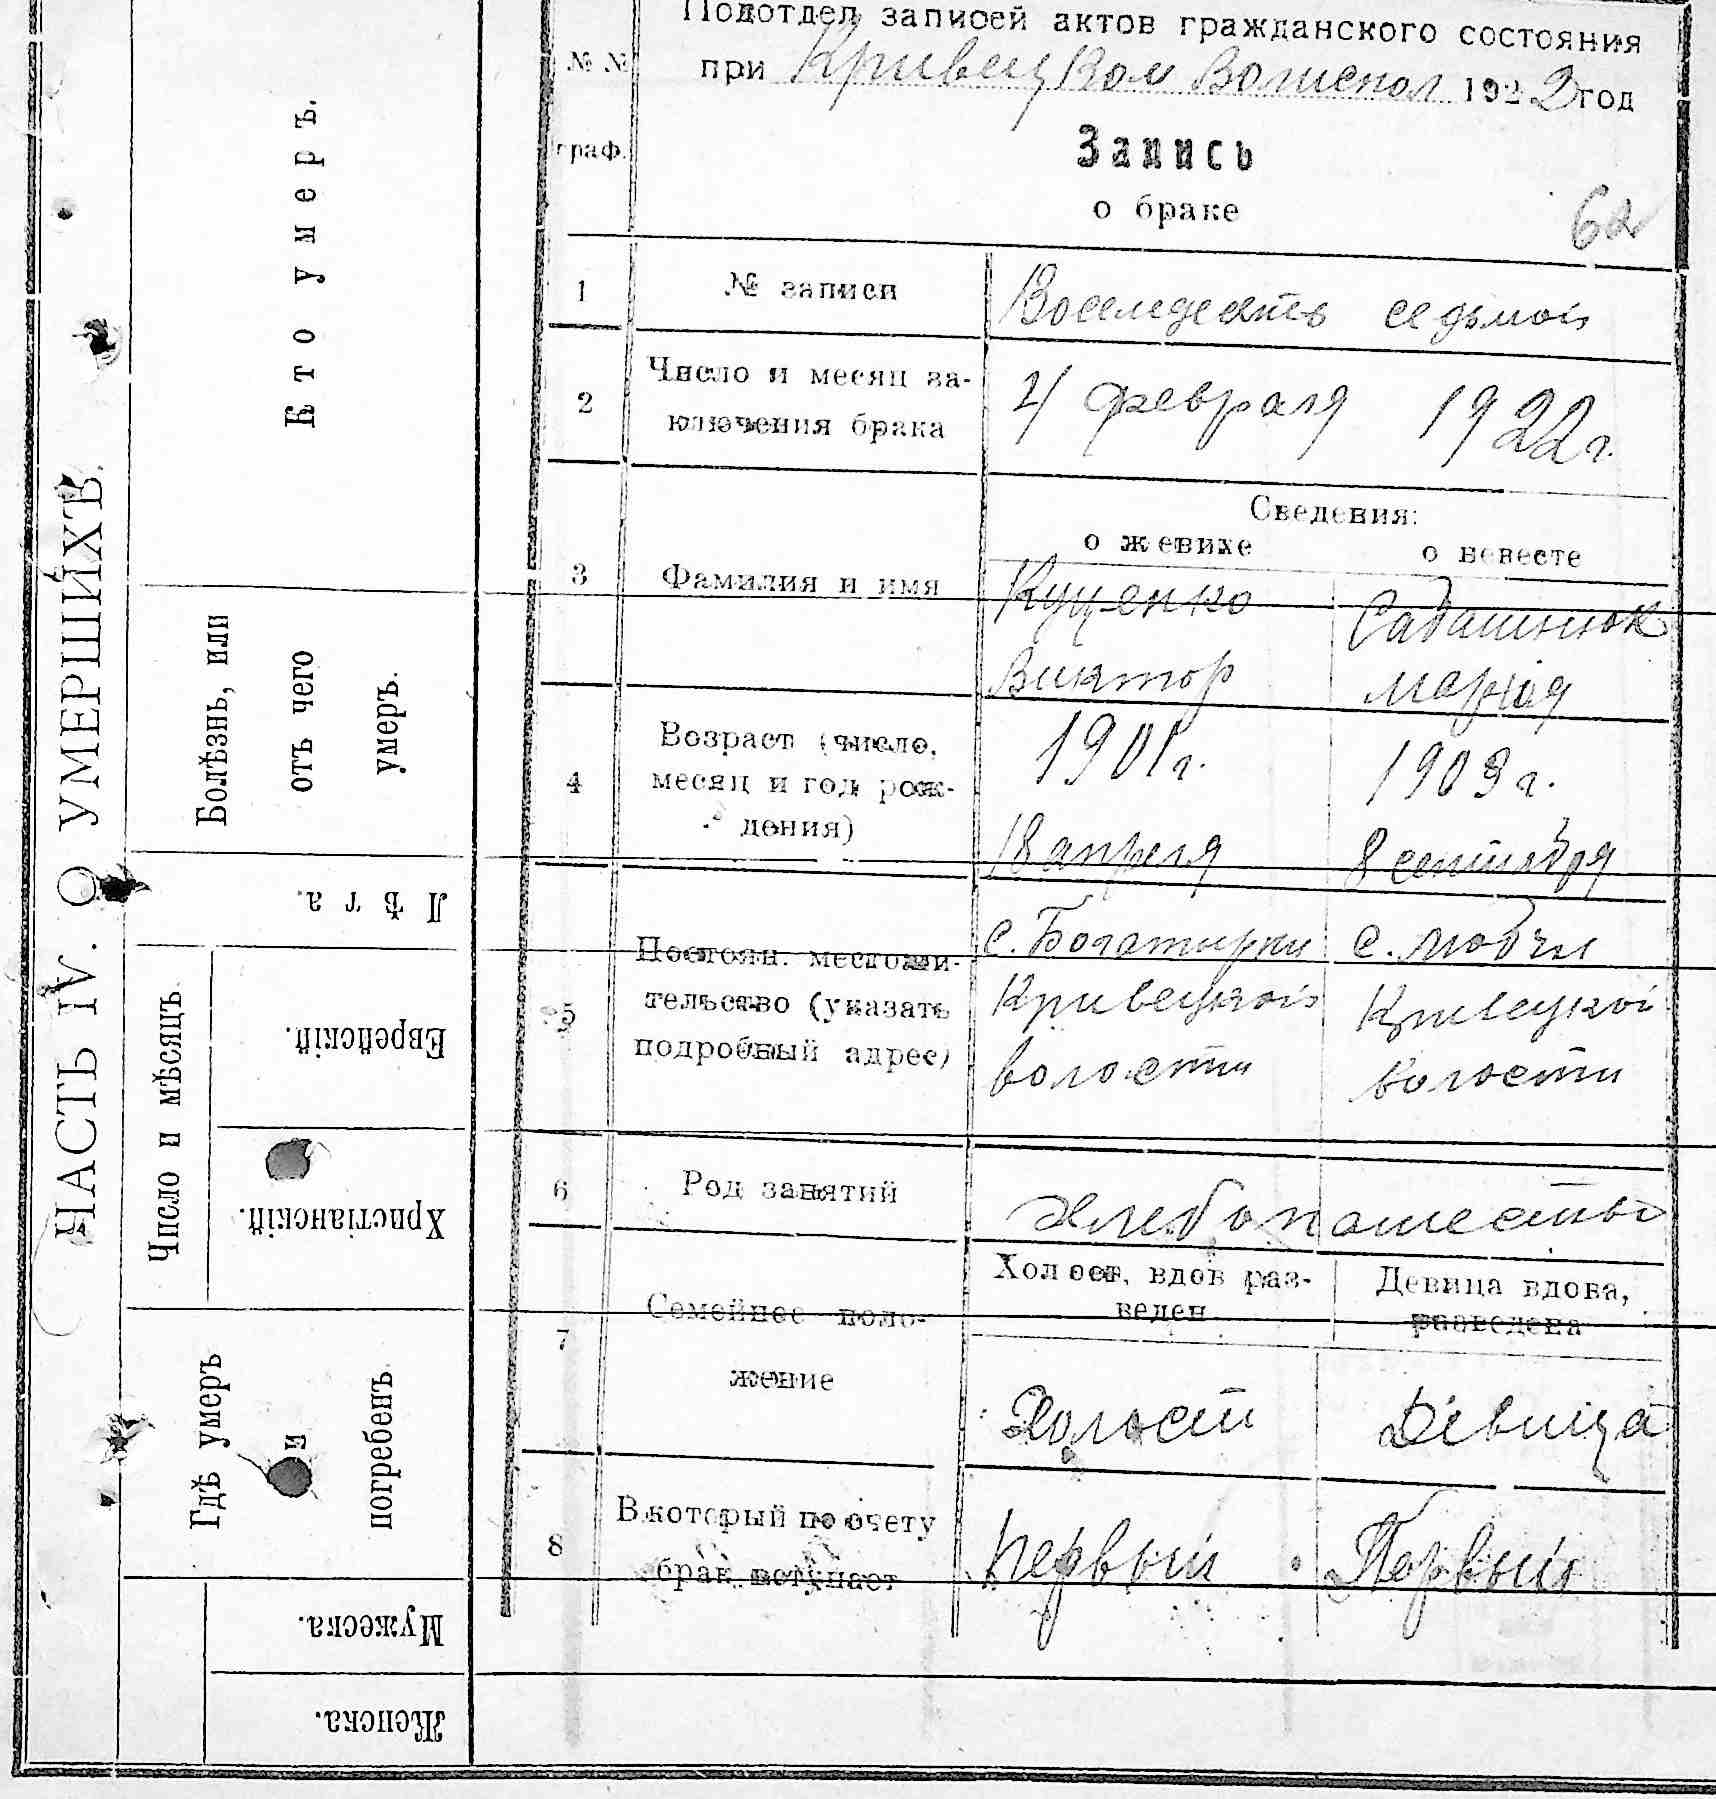 ЧАСТЬ IV. О УМЕРШИХЪ.
Кто умеръ.
Болѣзнь, или
отъ чего
умеръ.
Лѣта.
Число и мѣсяцъ
Еврейскій.
Христіанскій.
Гдѣ умеръ
и
погребенъ
Мужеска.
Женска.
Подотдел записей актов гражданского состояния
при Кривецком Волиспол 1922 год
№ №
граф.
Запись
о браке
62
1 № записи Восемдесять седьмой
2 Число и месяц за-
ключения брака
4 февраля 1922 г.
Сведения:
о женихе о невесте
3 Фамилия и имя
Куценко
Виктор
Мария
4 Возраст (число,
месяц и год рож-
дения)
1901 г.
18 апреля
1903 г.
8 сентября
5 Постоян. местожи-
тельство (указать
подробный адрес)
с. Богатырки
Кривецкой
волости
с. Любчы
Кривецкой
волости
6 Род занятий Хлебопашество
7 Семейное поло-
жение
Холост, вдов раз-
веден
Девица вдова,
разведена
Холост Девица
8 В который по счету
брак вступает
Первый Первый